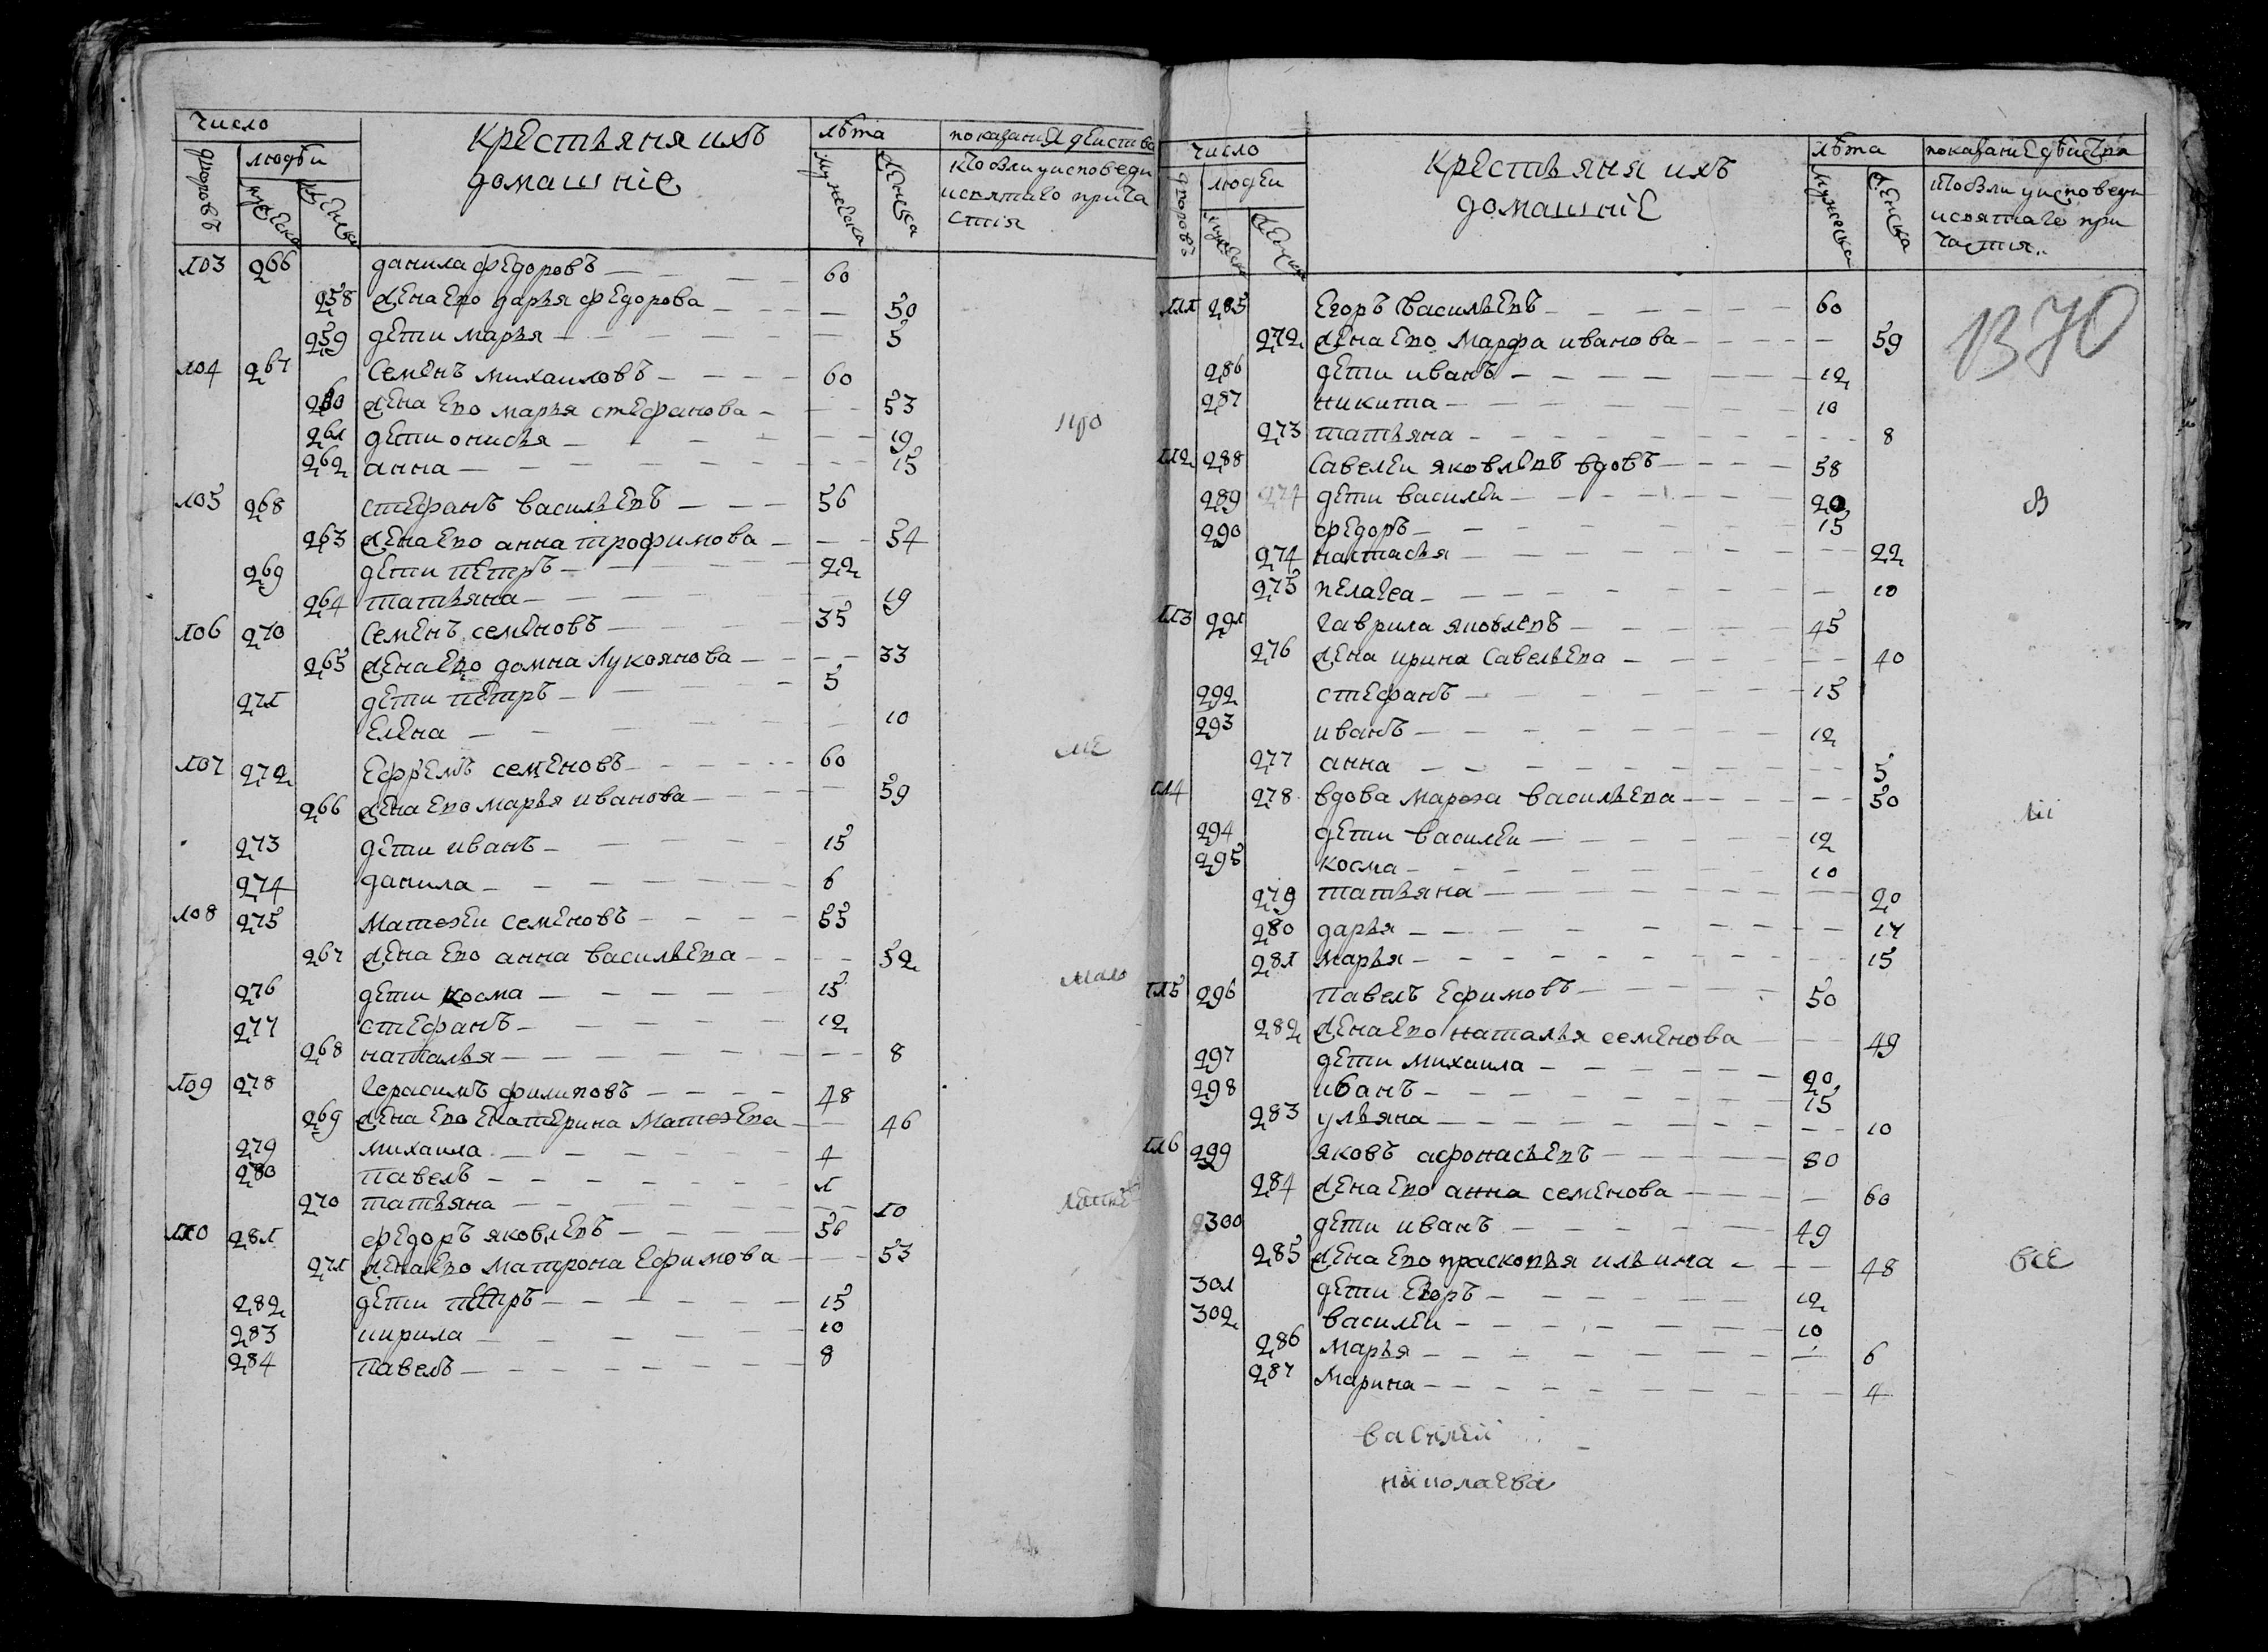 число
дворовъ
людѣи
мужеска
женска
крестьяня ихъ
домашніе
лѣта
мужеска
женска
показания деиства
кто был у исповеди
и святаго прича
стия
103 266 данила федоровъ 60
258 жена ево дарья федорова 50
259 дети марья 5
104 267 Семенъ михаиловъ 60
260 жена ево марья стефанова 53
261 дети онисья 19
262 анна 15
105 268 стефанъ васильевъ 56
263 жена ево анна трофимова 54
269 дети петръ 22
264 татьяна 19
106 270 Семенъ семеновъ 35
265 жена ево домна Лукоянова 33
271 дети петръ 5
Елена 10
107 272 Ефремъ семеновъ 60
266 жена ево марья иванова 59
273 дети иванъ 15
274 данила 6
108 275 Матвеи семеновъ 55
267 жена ево анна васильева 52
276 дети косма 15
277 стефанъ 12
268 наталья 8
109 278 герасимъ филиповъ 48
269 жена ево екатерина Матвеева 46
279 михаила 4
280 павелъ 1
270 татьяна 10
110 281 федоръ яковлевъ 56
271 жена ево Матрона Ефимова 53
282 дети петръ 15
283 кирила 10
284 павелъ 8
число
дворовъ
людеи
мужеска
женска
крестьяня ихъ
домашніе
лѣта
мужеска
женска
показание
кто был у исповеди
и святаго при
частия
1370
111 285 Егоръ васильевъ 60
272 жена ево Марфа иванова 59
286 дети иванъ 12
287 никита 10
273 татьяна 8
112 288 Савелеи яковлевъ вдовъ 58
289 274 дети василеи 20
290 федоръ 15
274 настасья 22
275 пелагеа 10
113 291 гаврила яковлевъ 45
276 жена ирина савельева 40
292 стефанъ 15
293 иванъ 12
277 анна 5
114 278 вдова Марфа васильева 50
294 дети василеи 12
295 косма 10
279 татьяна 20
280 дарья 17
281 Марья 15
115 296 павелъ Ефимовъ 50
282 жена ево наталья семенова 49
297 дети михаила 20
298 иванъ 15
283 ульяна 10
116 299 яковъ афонасьевъ 80
284 жена ево анна семенова 60
300 дети иванъ 49
285 жена ево прасковья ильина 48
301 дети Егоръ 12
302 василеи 10
286 Марья 6
287 Марина 4
василеи
николаева